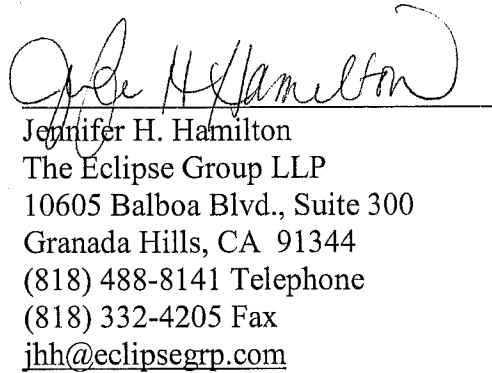 H Hamilton
Jennifer H. Hamilton
The Eclipse Group LLP
10605 Balboa Blvd., Suite 300
Granada Hills, CA 91344
(818) 488-8141 Telephone
(818) 332-4205 Fax
jhh@eclipsegrp.com